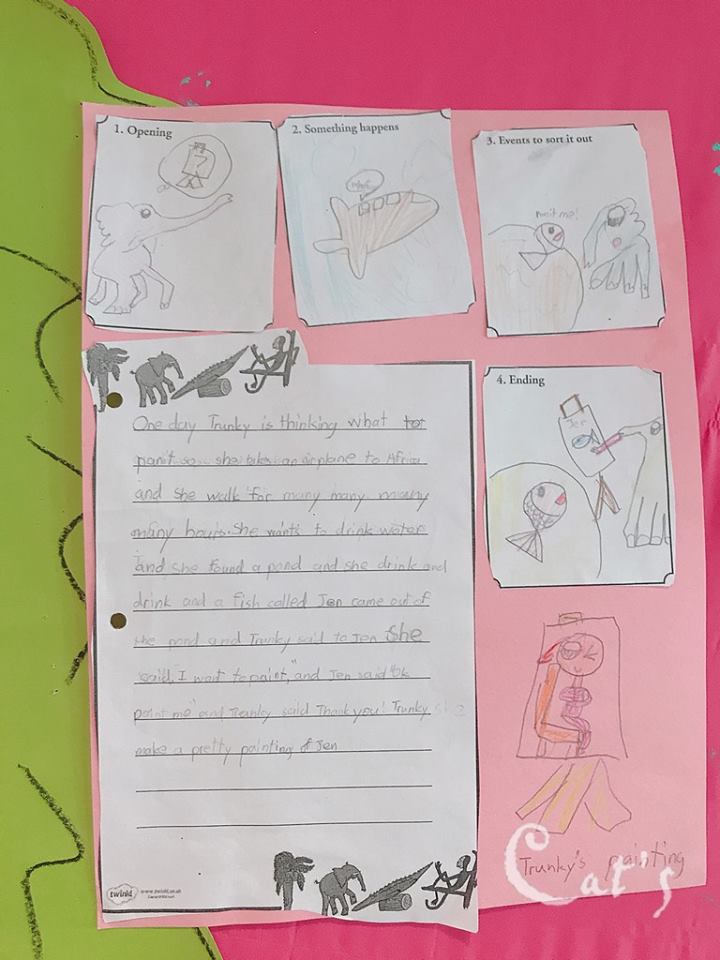 1. Opening
?
2. Something happens
3. Events to sort it out
4. Ending
Jen
One day Trunky is thinking what to
panit so.. she takes an airplane to Africa
and she walk for many many many
many hours. She wants to drink water
and she found a pond and she drink and
drink and a fish called Jen came out of
the pond and Trunky said to Jen She
said, "I want to paint," and Jen said "ok
paint me" and Trunky said Thank you! Trunky
make a pretty painting of Jen
twinkl
www.twinkl.co.uk
Trunky's painting
Cat's